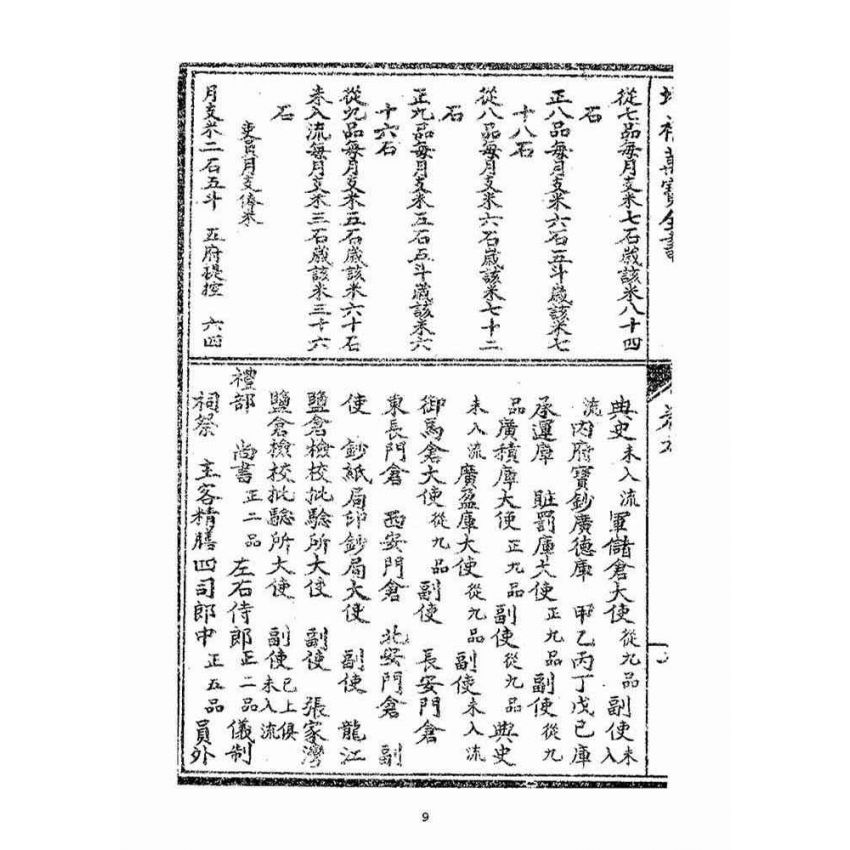 萬寶全書
從七品每月支米七石歲該米八十四
石
正八品每月支米六石五斗歲該米七
十八石
從八品每月支米六石歲該米七十二
石
正九品每月支米五石五斗歲該米六
十六石
從九品每月支米五石歲該米六十石
未入流每月支米三石歲該米三十六
石
吏員月支俸米
月支米二石五斗 五府提控 六四
典史未入流 軍儲倉大使從九品 副使未入
流 內府寶鈔廣德庫 甲乙丙丁戊己庫
承運庫 贓罰庫大使正九品 副使從九
品 廣積庫大使正九品 副使從九品 典史
未入流 廣盈庫大使從九品 副使未入流
御馬倉大使從九品 副使 長安門倉
東長門倉 西安門倉 北安門倉 副
使 鈔紙局印鈔局大使 副使 龍江
鹽倉檢校批驗所大使 副使 張家灣
鹽倉檢校批驗所大使 副使已上俱未入流
禮部 尚書正二品 左右侍郎正二品 儀制
祠祭 主客精膳四司郎中正五品 員外
9